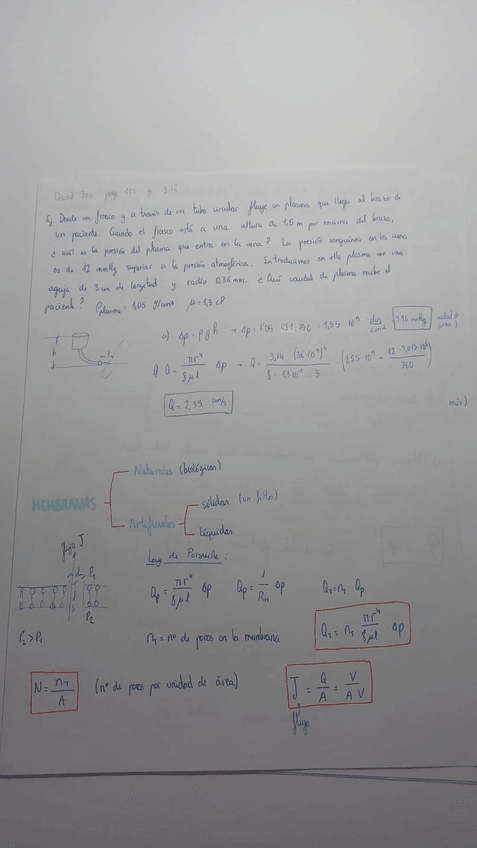 Ej. Desde un frasco y a través de un tubo circular fluye un plasma que llega al brazo de
un paciente. Cuando el frasco está a una altura de 1,5 m por encima del brazo,
¿cuál es la presión del plasma que entra en la vena? La presión sanguínea en la vena
es de 12 mmHg superior a la presión atmosférica. Introducimos en ella plasma con una
aguja de 3 cm de longitud y radio 0,36 mm. ¿Qué caudal de plasma recibe el
paciente? ρplasma = 1,05 g/cm³ μ = 1,3 cP
a) Δp = ρ g h → Δp = 1'05 · 981 · 150 = 1,55 · 10⁵ din/cm²
b) Q = πr⁴/8μl Δp → Q = 3,14 · (36·10⁻³)⁴ / 8 · 1'3·10⁻² · 3
h
más)
Naturales (biológicas)
MEMBRANAS
sólidas (un filtro)
Artificiales
Líquidas
flujo J
Ley de Poiseuille:
P₁
Qp = πr⁴/8μl Δp Qp = 1/RH Δp QT = nT · Qp
P₂
P₂ > P₁
nT = nº de poros en la membrana
QT = nT πr⁴/8μl Δp
N = nT/A (nº de poros por unidad de área)
J = Q/A = V/A·V
flujo